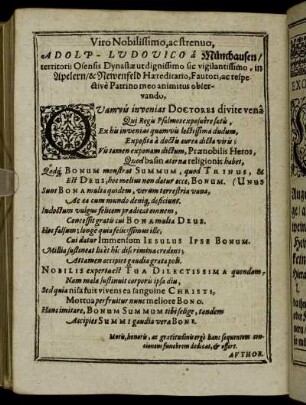 Viro Nobilissimo, ac strenuo,
ADOLP-LUDOVICO á Münchausen/
territorii Osensis Dynastæ ut dignissimo sic vigilantissimo, in
Apelern/ & Newenfeld Hæreditario, Fautori, ac respe-
ctivè Patrino meo animitus obser-
vando.
QUamvis invenias DOCTORES divite venâ
Qui Regii Psalmos exposuêre
Ex his invenias quamvis lectissima dudum,
Exposita à doctis aurea dicta viris:
Vis tamen exponam dictum, Prænobilis Heros,
Quod basin æternæ religionis habet,
BONUM monstrat SUMMUM, quod TRINUS, &
Est DEUS, hoc melius non datur ecce, BONUM. (UNUS
Sunt BONA multa quidem, verùm terrestria vana,
Ac ea cum mundo deniq, deficiunt.
Indoctum vulgus felicem prædicat ennem,
Concessit gratis cui BONA multa DEUS.
Hoc falsum; longè quia felicissimus ille,
Cui datur Immensum JESULUS IPSE BONUM.
Millia sustineat licèt hîc discrimina credens;
Attamen accipiet gaudia grata poli.
NOBILIS experta est TUA DILECTISSIMA quondam,
Nam mala sustinuit corporis ipsa diu,
Sed quia nisa fuit vivens ea sanguine CHRISTI,
Mortua perfruitur nunc meliore BONO.
Hanc imitare, BONUM SUMMUM tibi selige, tandem
Accipies SUMMI gaudia vera BONI.
honoris, ac gratitudinis ergò hanc sequentem con-
cionem funebrem dedicat, & offert.
AUTHOR.